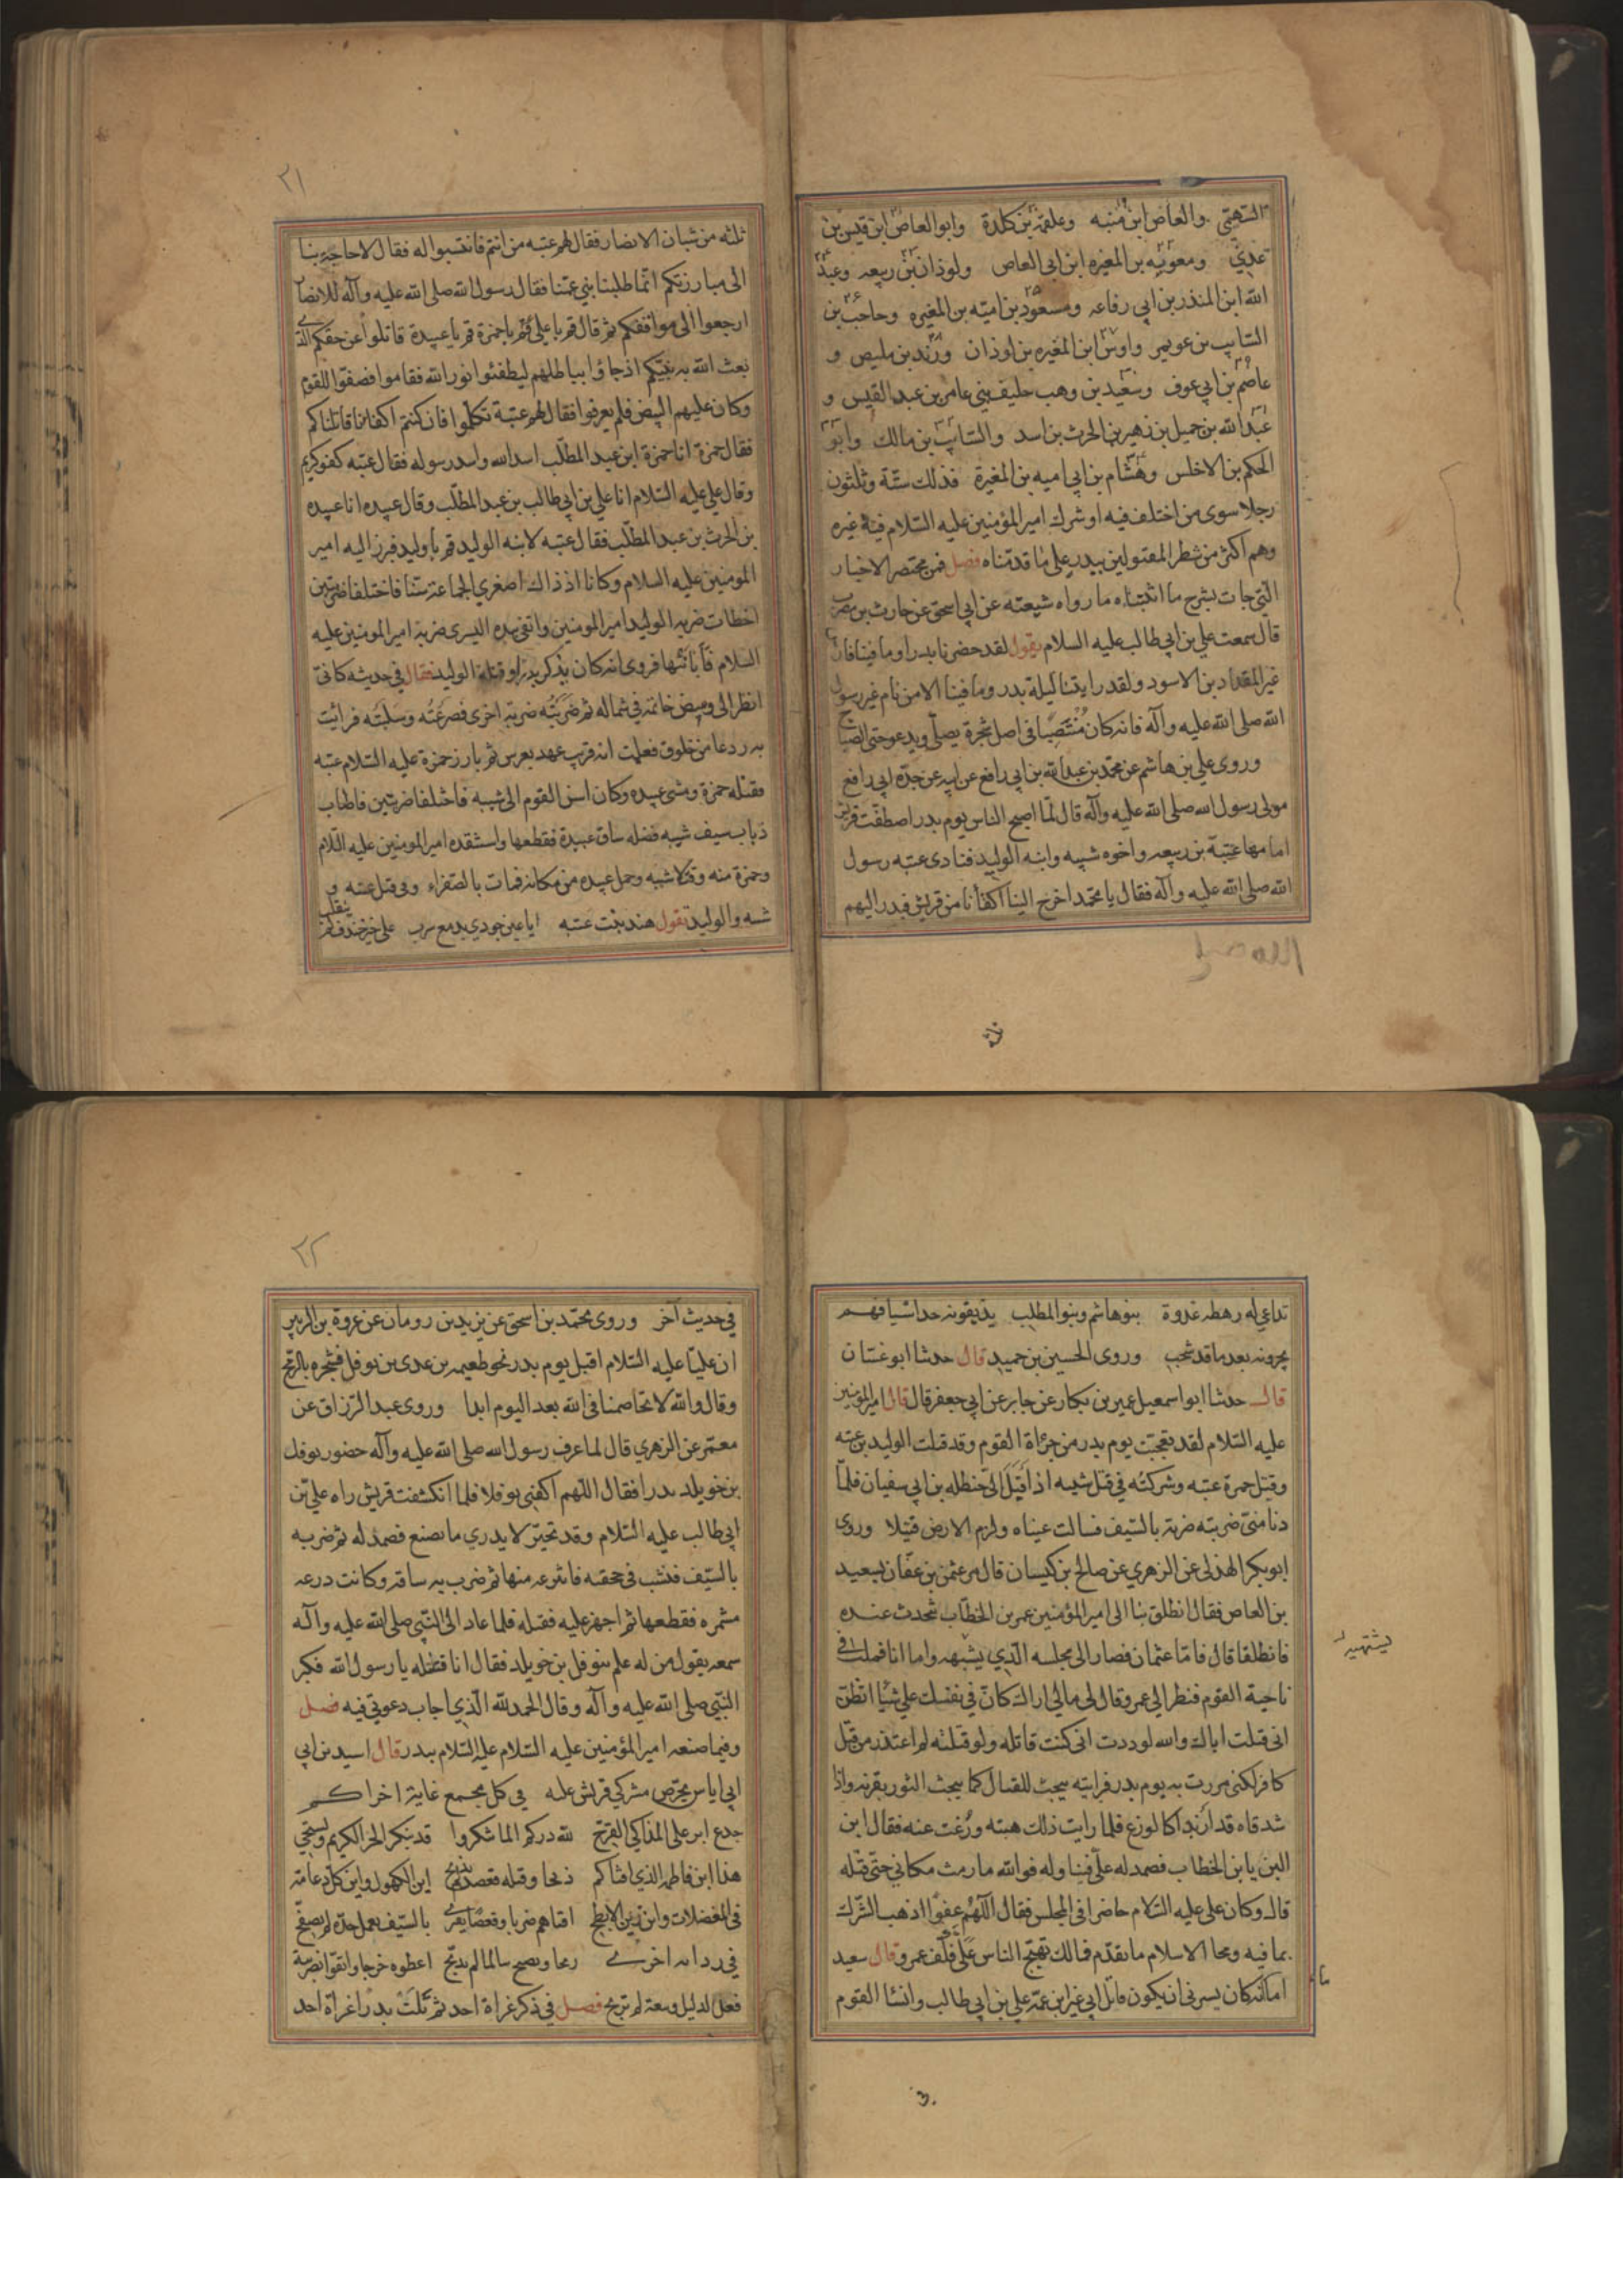 السهمي والعاص ابن منبه وعلقمة بن كلدة وابو العاص ابن قيس بن
عدي ومعوية بن المغيره ابن ابي العاص ولوذان بن ربيعه وعبد
الله ابن المنذر بن ابي رفاعه ومسعود بن اميته بن المغيره وحاجب بن
السايب بن عويمر واوس ابن المغيره بن لوذان وزيد بن مليص و
عاصم بن ابي عوف وسعيد بن وهب حليف بني عامر بن عبد القيس و
عبد الله بن جميل بن زهير بن الحرث بن اسد والسايب بن مالك وابو
الحكم بن الاخلس وهشام بن ابي اميه بن المغيرة فذلك ستة وثلثون
رجلا سوى من اختلف فيه او شرك امير المؤمنين عليه السلام فيه غيره
وهم اكثر من شطر المقتولين ببدر على ما قدمناه فصل فمن مختصر الاخبار
التي جات بشرح ما اثبتناه ما رواه شيعته عن ابي اسحق عن حارث بن مضرب
قال سمعت علي بن ابي طالب عليه السلام يقول لقد حضرنا بدرا وما فينا فارس
غير المقداد بن الاسود ولقد رايتنا ليلة بدر وما فينا الا من نام غير رسول
الله صلى الله عليه وآله فانه كان منتصبا في اصل شجرة يصلي ويدعو حتى الصباح
وروى علي بن هاشم عن محمد بن عبد الله بن ابي رافع عن ابيه عن جده ابي رافع
مولى رسول الله صلى الله عليه وآله قال لما اصبح الناس يوم بدر اصطفت قريش
امامها عتبة بن ربيعه واخوه شيبه وابنه الوليد فنادى عتبه رسول
الله صلى الله عليه وآله فقال يا محمد اخرج الينا اكفأنا من قريش فبدر اليهم
ثلثه
٢١
ثلثه من شبان الانصار فقال لهم عتبه من انتم فانتسبوا له فقال لا حاجة بنا
الى مبارزتكم انما طلبنا بني عمنا فقال رسول الله صلى الله عليه وآله للانصار
ارجعوا الى مواقفكم ثم قال قم يا علي قم يا حمزة قم يا عبيدة قاتلوا عن حقكم الذي
بعث الله به نبيكم اذ جاؤا بباطلهم ليطفئوا نور الله فقاموا فصفوا للقوم
وكان عليهم البيض فلم يعرفوا فقال لهم عتبة تكلموا فان كنتم اكفانا قاتلناكم
فقال حمزة انا حمزة ابن عبد المطلب اسد الله واسد رسوله فقال عتبه كفو كريم
وقال علي عليه السلام انا علي بن ابي طالب بن عبد المطلب وقال عبيده انا عبيده
بن الحرث بن عبد المطلب فقال عتبه لابنه الوليد قم يا وليد فبرز اليه امير
المومنين عليه السلام وكانا اذ ذاك اصغري الجماعة سنا فاختلفا ضربتين
اخطات ضربه الوليد امير المومنين واتقى بيده اليسرى ضربة امير المومنين عليه
السلام فأبانتها فروى انه كان يذكر بدرا وقتله الوليد فقال في حديثه كاني
انظر الى وميض خاتمه في شماله ثم ضربته ضربة اخرى فصرعته وسلبته فرائيت
به ردعا من خلوق فعلمت انه قريب عهد بعرس ثم بارز حمزة عليه السلام عتبه
فقتله حمزة ومشى عبيده وكان اسن القوم الى شيبه فاختلفا ضربتين فاصاب
ذباب سيف شيبه عضله ساق عبيدة فقطعها واستنقذه امير المومنين عليه السلام
وحمزة منه وقتلا شيبه وحمل عبيده من مكانه فمات بالصفراء وفي قتل عتبه و
شيبه والوليد تقول هند بنت عتبه ايا عين جودي بدمع سرب على خير خندف لم ينقلب
تداعى له رهطه غدوة بنو هاشم وبنو المطلب يذيقونه حد اسيافهم
يجرونه بعد ما قد شجب وروى الحسين بن حميد قال حدثنا ابو غسان
قال حدثنا ابو اسمعيل عمير بن بكار عن جابر عن ابي جعفر قال قال امير المؤمنين
عليه السلام لقد تعجبت يوم بدر من جرأة القوم وقد قتلت الوليد بن عتبه
وقتل حمزة عتبه وشركته في قتل شيبه اذ اقبل الي حنظله بن ابي سفيان فلما
دنا مني ضربته ضربة بالسيف فسالت عيناه ولزم الارض قتيلا وروى
ابو بكر الهذلي عن الزهري عن صالح بن كيسان قال مر عثمن بن عفان بسعيد
بن العاص فقال انطلق بنا الى امير المؤمنين عمر بن الخطاب نتحدث عنده
فانطلقا قال فاما عثمان فصار الى مجلسه الذي يشبهه واما انا فملت في
ناحية القوم فنظر الي عمر وقال لي مالي اراك كان في نفسك علي شيئا اتظن
اني قتلت اباك والله لوددت اني كنت قاتله ولو قتلته لم اعتذر من قتل
كافر لكني مررت به يوم بدر فرايته يبحث للقتال كما يبحث الثور بقرنه واذا
شدقاه قد ازبدا كالوزغ فلما رايت ذلك هبته وزغت عنه فقال الى اين
يا بن الخطاب فصمد له علي فتناوله فوالله ما رمت مكاني حتى قتله
قال وكان علي عليه السلام حاضرا في المجلس فقال اللهم عفوا اذهب الشرك
بما فيه ومحا الاسلام ما تقدم فمالك تهيج الناس علي فكف عمر وقال سعيد
اما انه كان يسرني ان يكون قاتل ابي غير ابن عمه علي بن ابي طالب وانشا القوم
يشتهيه
٢٢
في حديث آخر وروى محمد بن اسحق عن يزيد بن رومان عن عروة بن الزبير
ان عليا عليه السلام اقبل يوم بدر نحو طعيمه بن عدي بن نوفل فشجره بالرمح
وقال والله لا تخاصمنا في الله بعد اليوم ابدا وروى عبد الرزاق عن
معمر عن الزهري قال لما عرف رسول الله صلى الله عليه وآله حضور نوفل
بن خويلد بدرا فقال اللهم اكفني نوفلا فلما انكشفت قريش راه علي بن
ابي طالب عليه السلام وقد تحير لا يدري ما يصنع فصمد له ثم ضربه
بالسيف فنشب في حجفته فانتزعه منها ثم ضرب به ساقه وكانت درعه
مشمره فقطعها ثم اجهز عليه فقتله فلما عاد الى النبي صلى الله عليه وآله
سمعه يقول من له علم بنوفل بن خويلد فقال انا قتلته يا رسول الله فكبر
النبي صلى الله عليه وآله وقال الحمد لله الذي اجاب دعوتي فيه فصل
وفيما صنعه امير المؤمنين عليه السلام عليه السلام ببدر قال اسيد بن ابي
ابي اياس يحرص مشركي قريش عليه في كل مجمع غاية اخراكم
جدع ابر على المذاكي القرح لله دركم الما شكروا قد ينكر الحر الكريم ويستحي
هذا ابن فاطمه الذي افناكم ذبحا وقتله قعصه لم يذبح اين الكهول واين كل دعامة
في المعضلات واين زين الابطح افناهم ضربا وقعصا يفري بالسيف يعمل حده لم يصفح
اعطوه خرجا واتقوا بضريبة
فعل الذليل وبيعة لم تربح فصل في ذكر غزاة احد ثم تلت بدرا غزاة احد